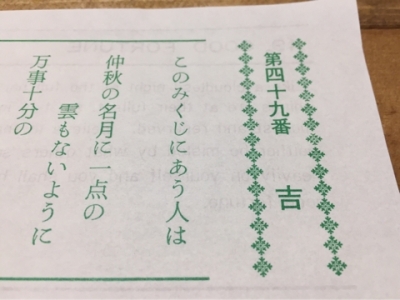 第四十九番
吉
このみくじにあう人は
仲秋の名月に一点の
雲もないように
万事十分の